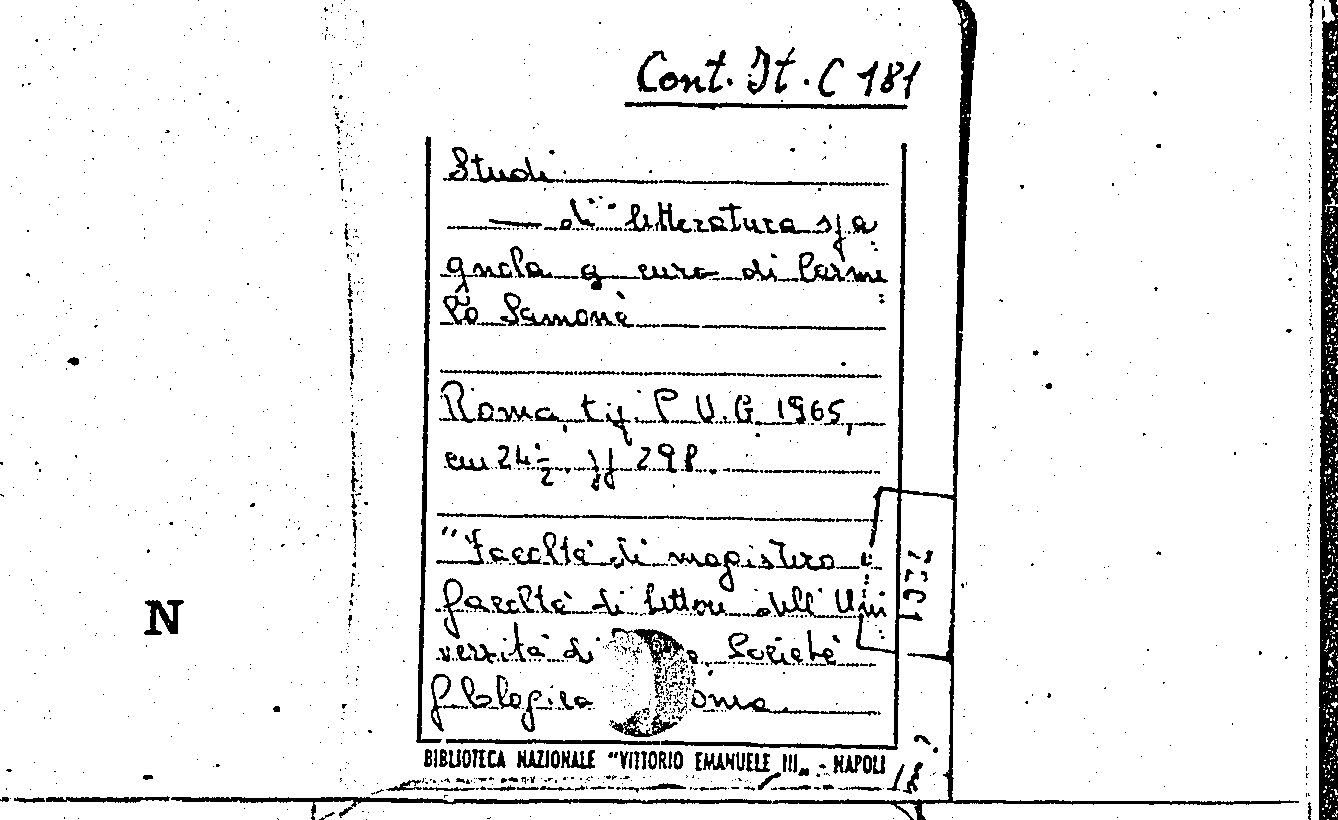 Cont. It. C 181
Studi
— di letteratura spa
gnola a cura di Carme
lo Samonà
Roma, tip. P.U.G. 1965,
cm 24½. pp 298.
"Facoltà di magistero e
facoltà di lettere dell'Uni
versità di Società
filologica
N
BIBLIOTECA NAZIONALE "VITTORIO EMANUELE III„ - NAPOLI